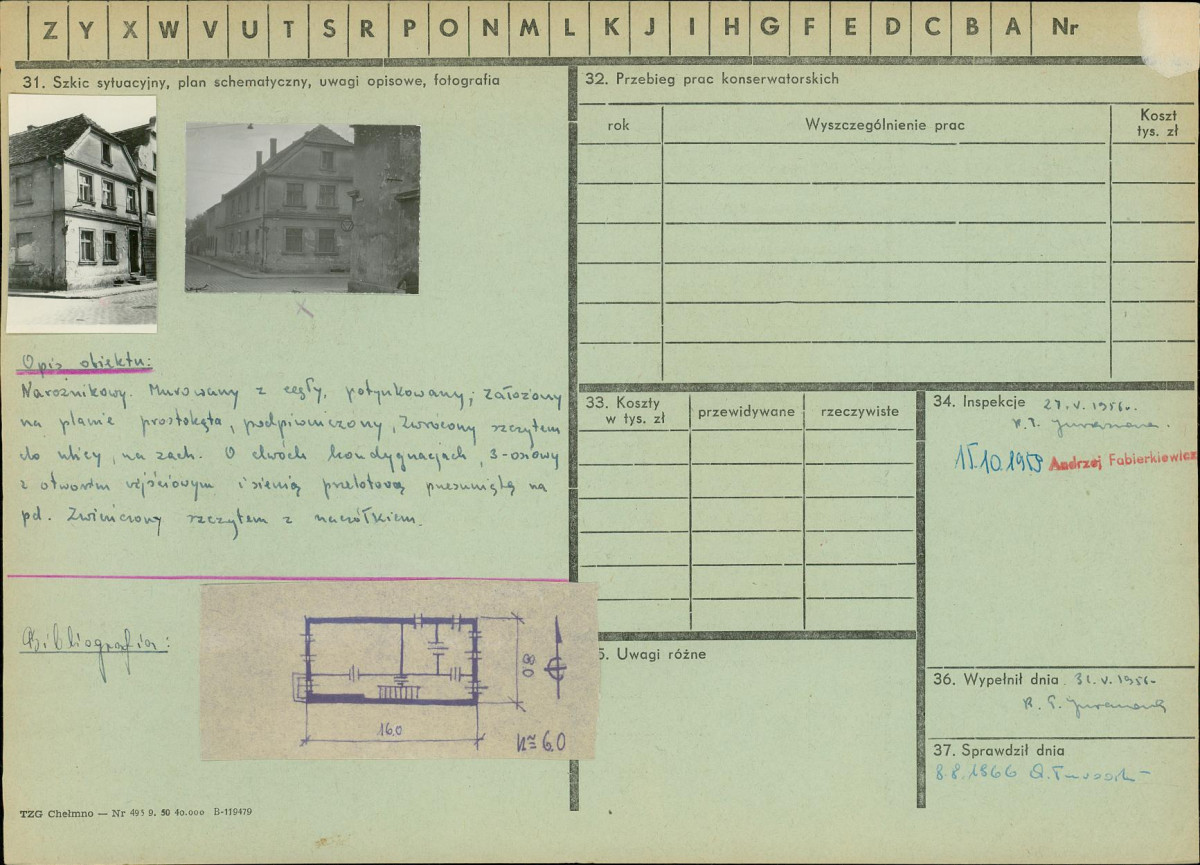 Z Y X W V U T S R P O N M L K J I H G F E D C B A Nr
31. Szkic sytuacyjny, plan schematyczny, uwagi opisowe, fotografia
Opis obiektu:
Narożnikowy. Murowany z cegły, potynkowany; założony
na planie prostokąta, podpiwniczony, zwrócony szczytem
do ulicy, na zach. O dwóch kondygnacjach, 3-osiowy
z otworem wejściowym i sienią przelotową przesuniętą na
pd. Zwieńczony szczytem z naczółkiem.
Bibliografia:
8.0
16.0
H≈6.0
TZG Chełmno — Nr 495 9. 50 40.000 B-119479
32. Przebieg prac konserwatorskich
rok
Wyszczególnienie prac
Koszt
tys. zł
33. Koszty
w tys. zł
przewidywane
rzeczywiste
34. Inspekcje 27.V.1956.
15.10.1959 Andrzej Fabierkiewicz
5. Uwagi różne
36. Wypełnił dnia 31.V.1956
37. Sprawdził dnia
8.8.1966